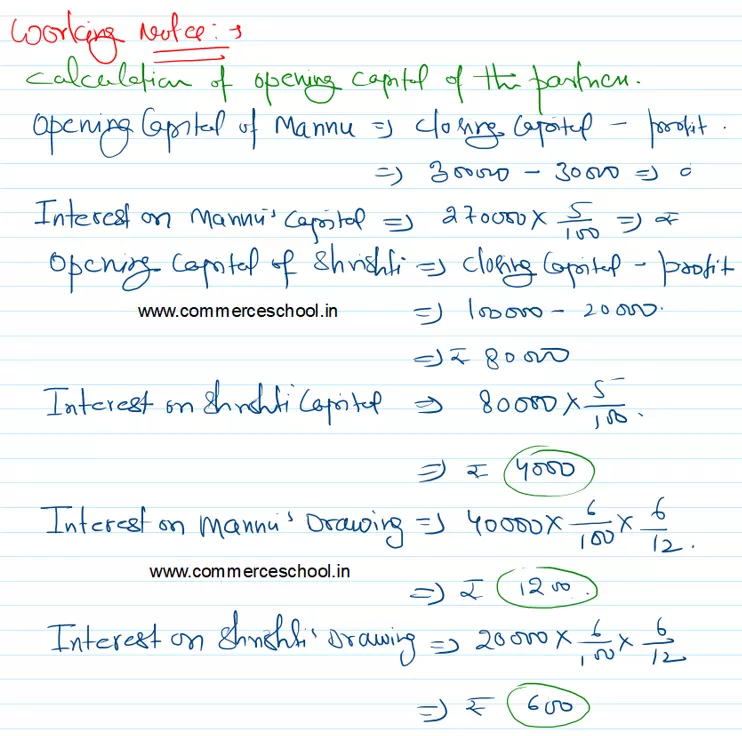 Working Notes:→
Calculation of opening capital of the partner.
Opening Capital of Mannu ⇒ Closing Capital - profit.
⇒ 300000 - 30000 ⇒
Interest on Mannu's Capital ⇒ 270000 × 5/100 ⇒ ₹
Opening Capital of Shrishti ⇒ Closing Capital - profit
www.commerceschool.in ⇒ 100000 - 20000.
⇒ ₹ 80000
Interest on Shrishti Capital ⇒ 80000 × 5/100.
⇒ ₹ 4000
Interest on Mannu's Drawing ⇒ 40000 × 6/100 × 6/12.
www.commerceschool.in ⇒ ₹ 1200.
Interest on Shrishti's Drawing ⇒ 20000 × 6/100 × 6/12
⇒ ₹ 600